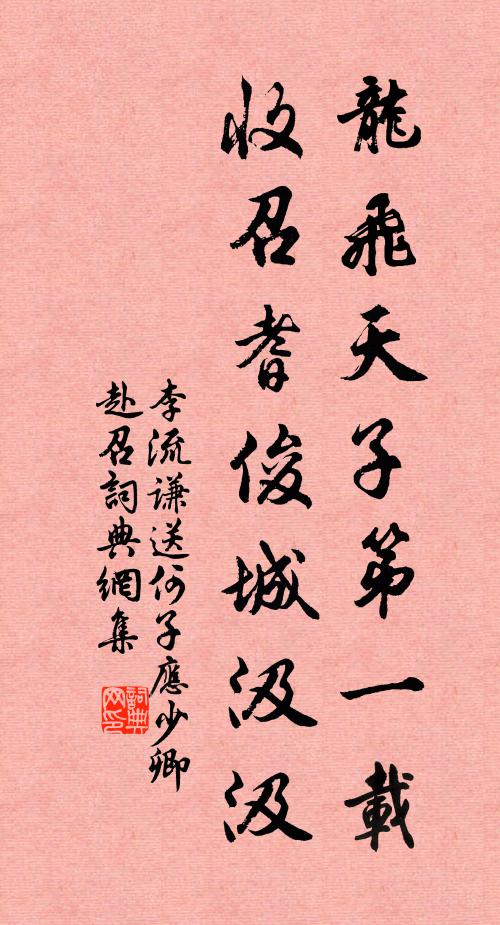 龍飛天子第一載
收召耆俊城汲汲
李流谦送何子應少卿
赴召詞典網集
詞典
网印